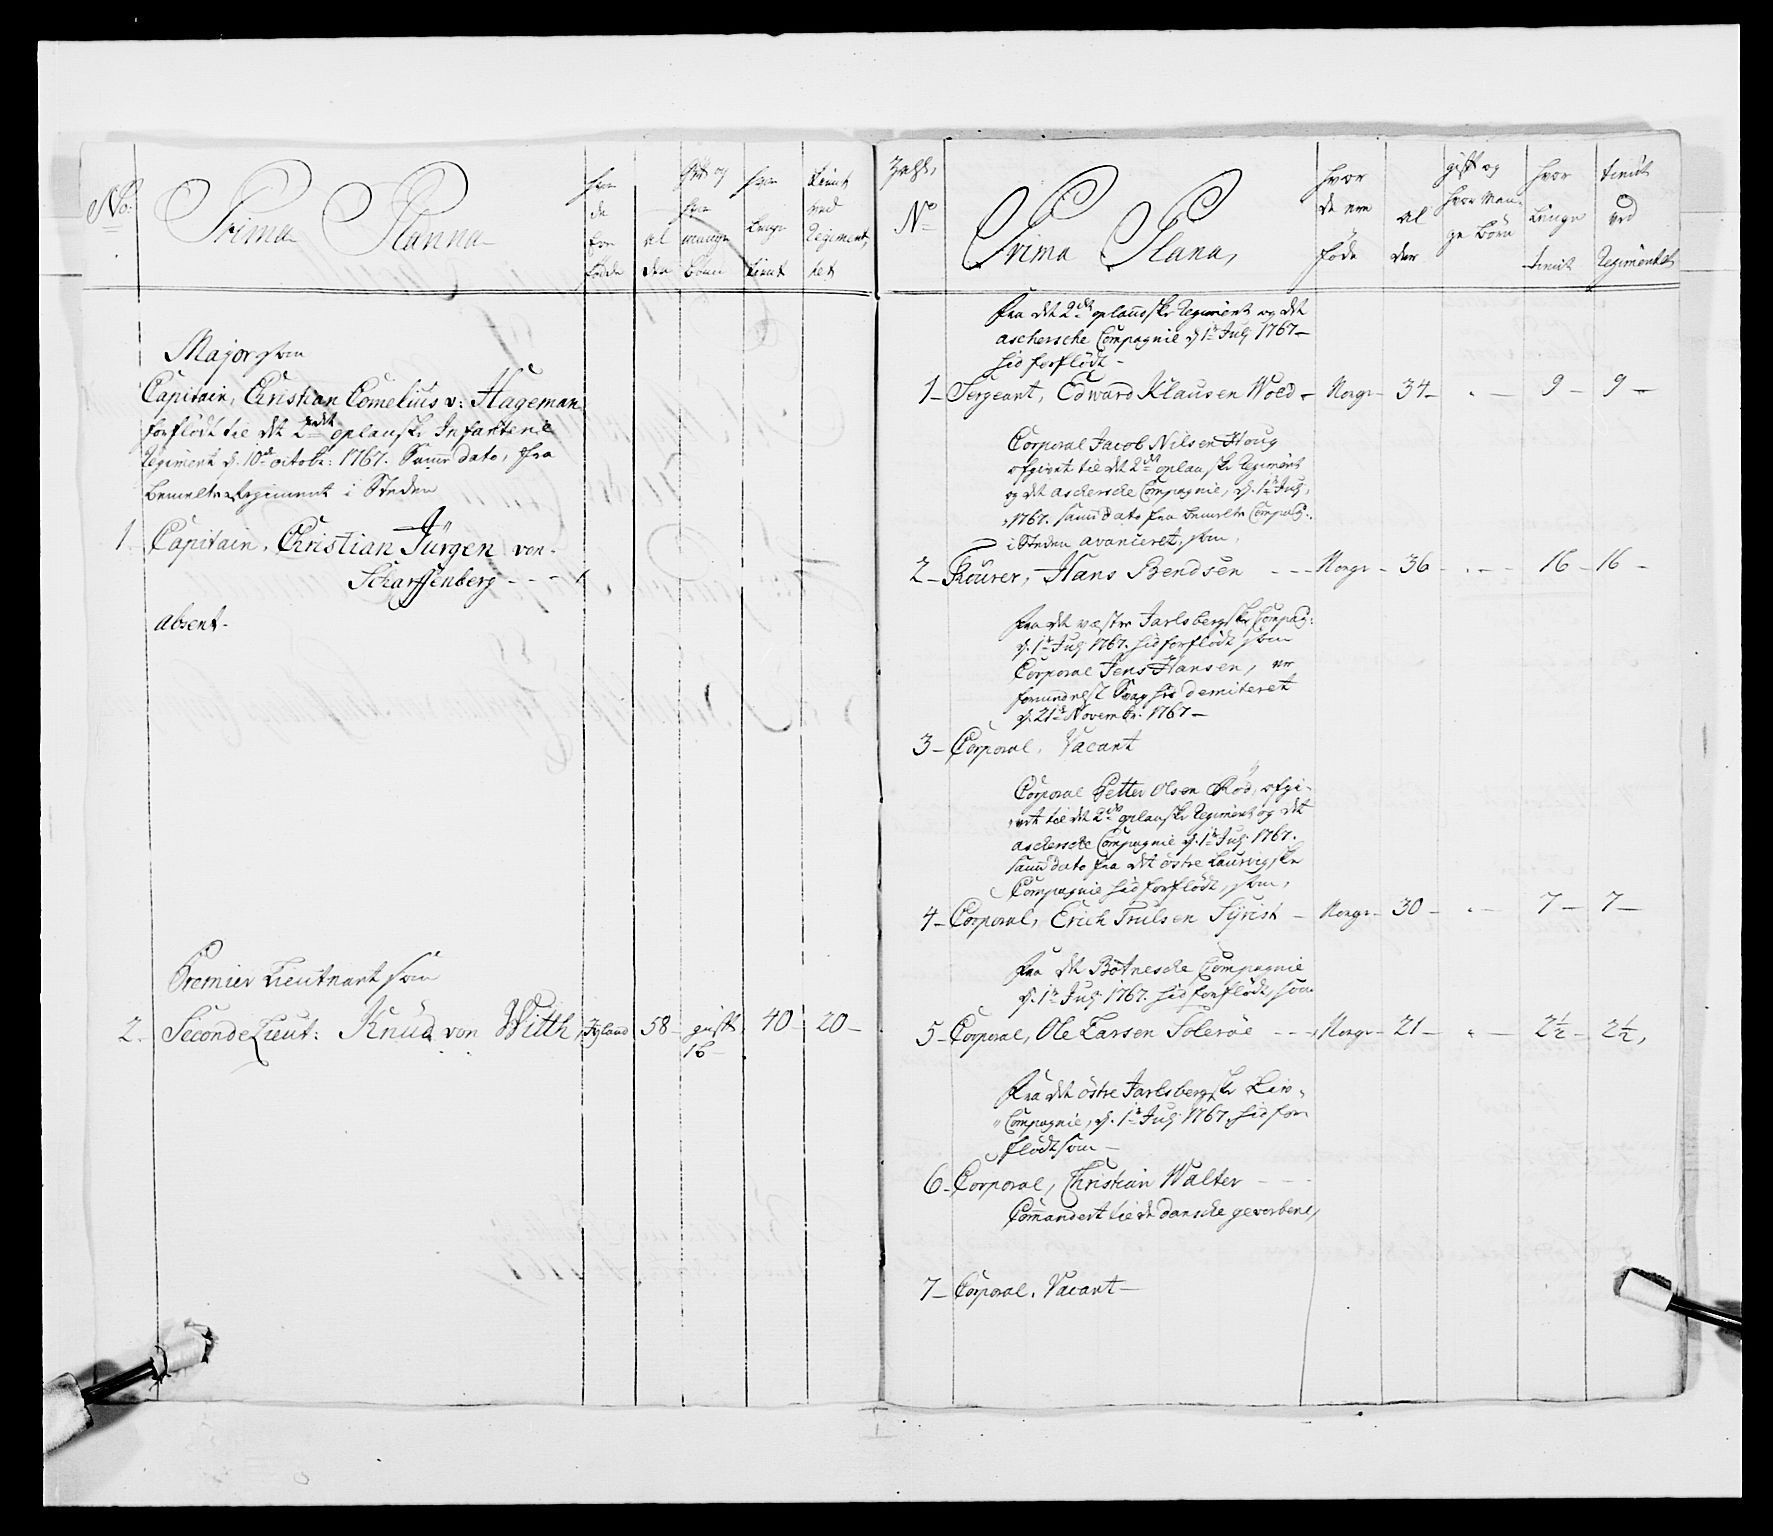 No:
Prima Planna
hvor de Ere fødde
al der
gift og hvor mange Børn
hvor længe tient
tient ved Regimentet
Major som
Capitain, Christian Cornelius v: Hageman
forflödt til det 2det oplanske Infanterie
Regiment d. 10de octobr: 1767. Samme dato, fra
bemelte Regiment i Steden
1. Capitain, Christian Jürgen von
Scharffenberg - - -
absent.
Premier Lieutnant som
2. Seconde Lieut: Knud von Witth, Jyland 58 - gift 40 - 20 -
16 -
No
Prima Plana,
hvor de ere föde
al der
gift og hvor man- ge Börn
hvor længe tient
tient ved Regimentet
Fra det 2det oplandske Regiment og det
aschersche Compagnie d. 1te July 1767 -
hid forflödt -
1 - Sergeant, Edward Klausen Woed - Norge - 34 - " - 9 - 9 -
Corporal Jacob Nilsen Houg
afgivet til det 2det oplanske Regiment
og det aschersche Compagnie, d. 1te July,
1767. samme dato fra bemelte Compag:
i Steden avanceret, som,
2 - Fourer, Hans Bendsen - - - Norge - 36 - " - 16 - 16 -
Fra det væstre Jarlsbergske Compag:
d. 1te July 1767. hid forflödt som
Corporal Jens Hansen, er
formedelst Svaghed demiteret
d. 21de Novembr. 1767 -
3 - Corporal, Vacant
Corporal Petter Olsen Röd, afgi-
vet til det 2det oplanske Regiment og det
aschersche Compagnie d. 1te July 1767.
samme dato fra det östre Laurvigske
Compagnie hid forflödt, som,
4 - Corporal, Erich Trulsen Syrist - Norge - 30 - " - 7 - 7 -
Fra det Botnesche Compagnie
d. 1te July 1767. hid forflödt, som
5 - Corporal, Ole Larsen Soleröe - - - Norge - 21 - " - 2½ - 2½,
Fra det östre Jarlsbergske Liv-
Compagnie, d. 1te July 1767, hid for
flödt som -
6 - Corporal, Christian Walter - - -
Commandert til de danske geverbene,
7 - Corporal, Vacant -